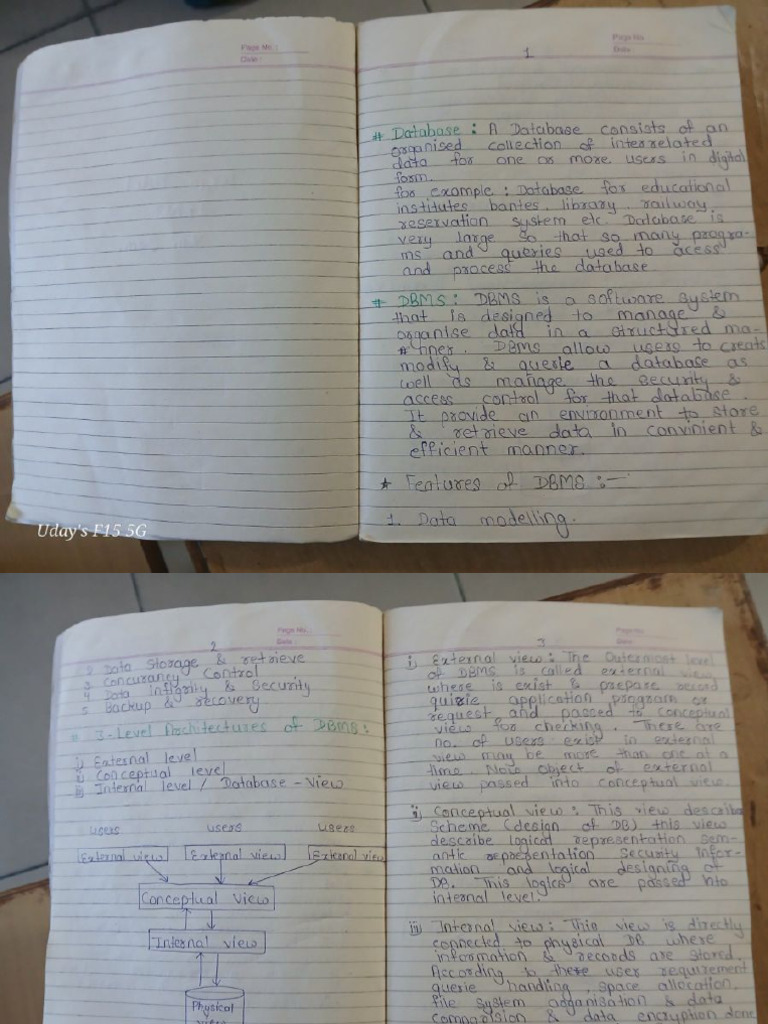 Page No.:
Date:
Page No.
Date:
1
# Database : A Database consists of an
organised collection of interrelated
data for one or more users in digital
form.
for example : Database for educational
institutes bankes, library, railway,
reservation system etc. Database is
very large so that so many progra-
ms and queries used to acess
and process the database.
# DBMS : DBMS is a software system
that is designed to manage &
organise data in a structured ma-
nner. DBMS allow users to create
modify & querie a database as
well as manage the security &
access control for that database.
It provide an environment to store
& retrieve data in convinient &
efficient manner.
★ Features of DBMS :-
1. Data modelling.
Uday's F15 5G
Page No.:
Date:
2
2 Data Storage & retrieve
3 Concurancy Control
4 Data Intigrity & Security
5 Backup & recovery
# 3-Level Architectures of DBMS:
i) External level
ii) Conceptual level
iii) Internal level / Database - View
users users users
External view External view External view
Conceptual View
Internal view
Physical
Page No.:
Date:
3
i) External view : The Outermost level
of DBMS is called external view
where is exist & prepare record
querie application program or
request and passed to conceptual
view for checking. There are
no. of users exist in external
view may be more than one at a
time. Now object of external
view passed into conceptual view.
ii) Conceptual view : This view describe
Scheme (design of DB) this view
describe logical representation sem-
antic representation Security Infor-
mation and logical designing of
DB. This logics are passed into
internal level.
iii) Internal view : This view is directly
connected to physical DB where
information & records are stored.
According to these user requirement
querie handling, space allocation,
file system & data
& data encryption done